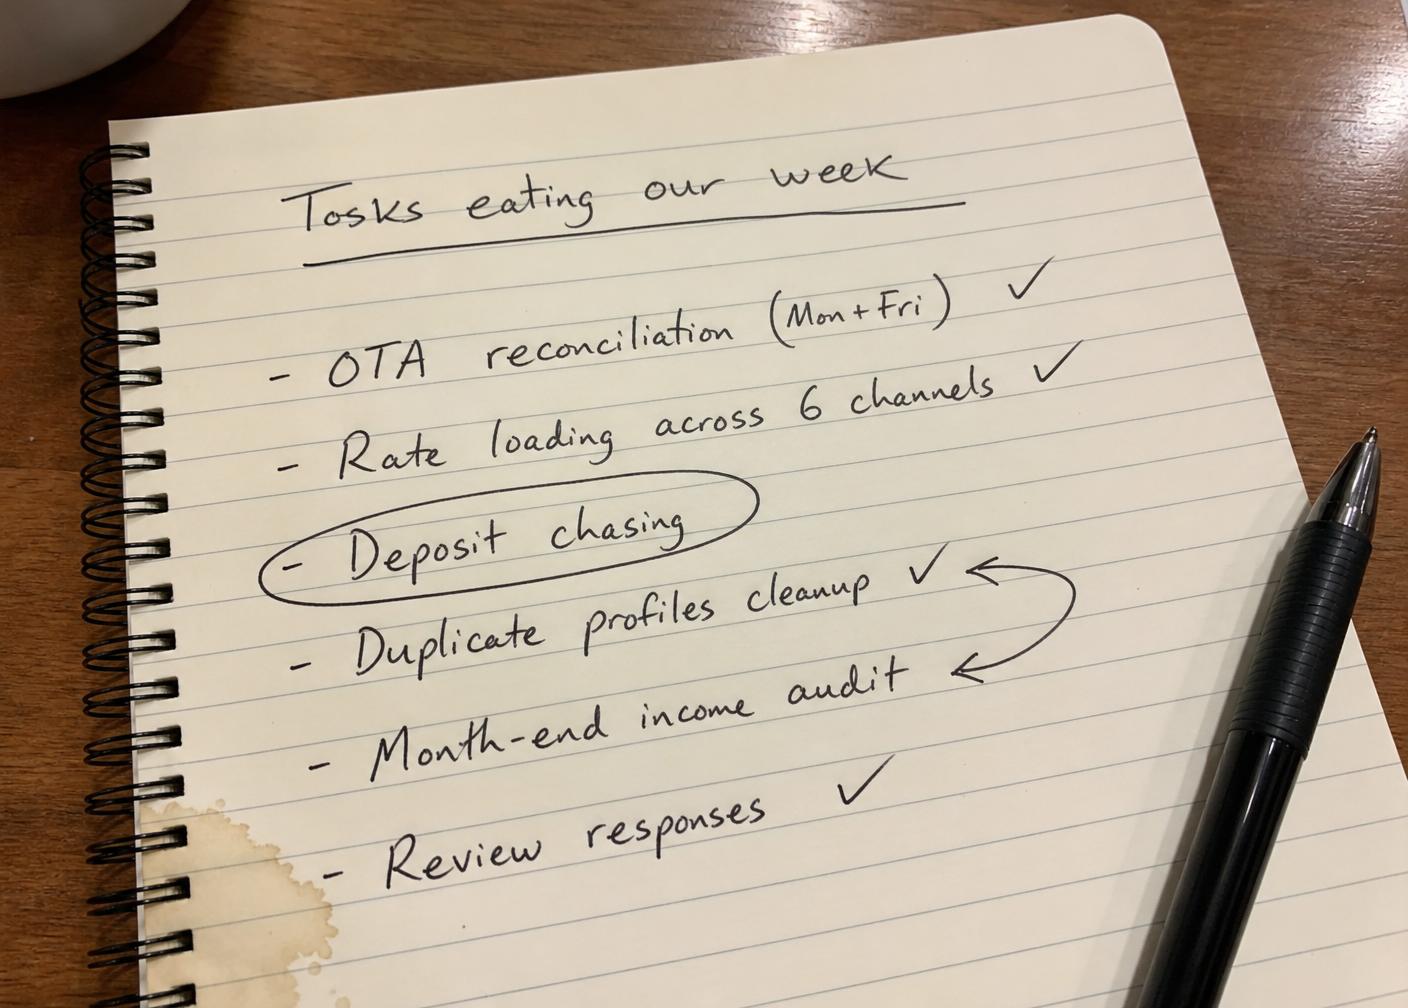 Tasks eating our week
- OTA reconciliation (Mon+Fri) ✓
- Rate loading across 6 channels ✓
- Deposit chasing
- Duplicate profiles cleanup ✓
- Month-end income audit
- Review responses ✓